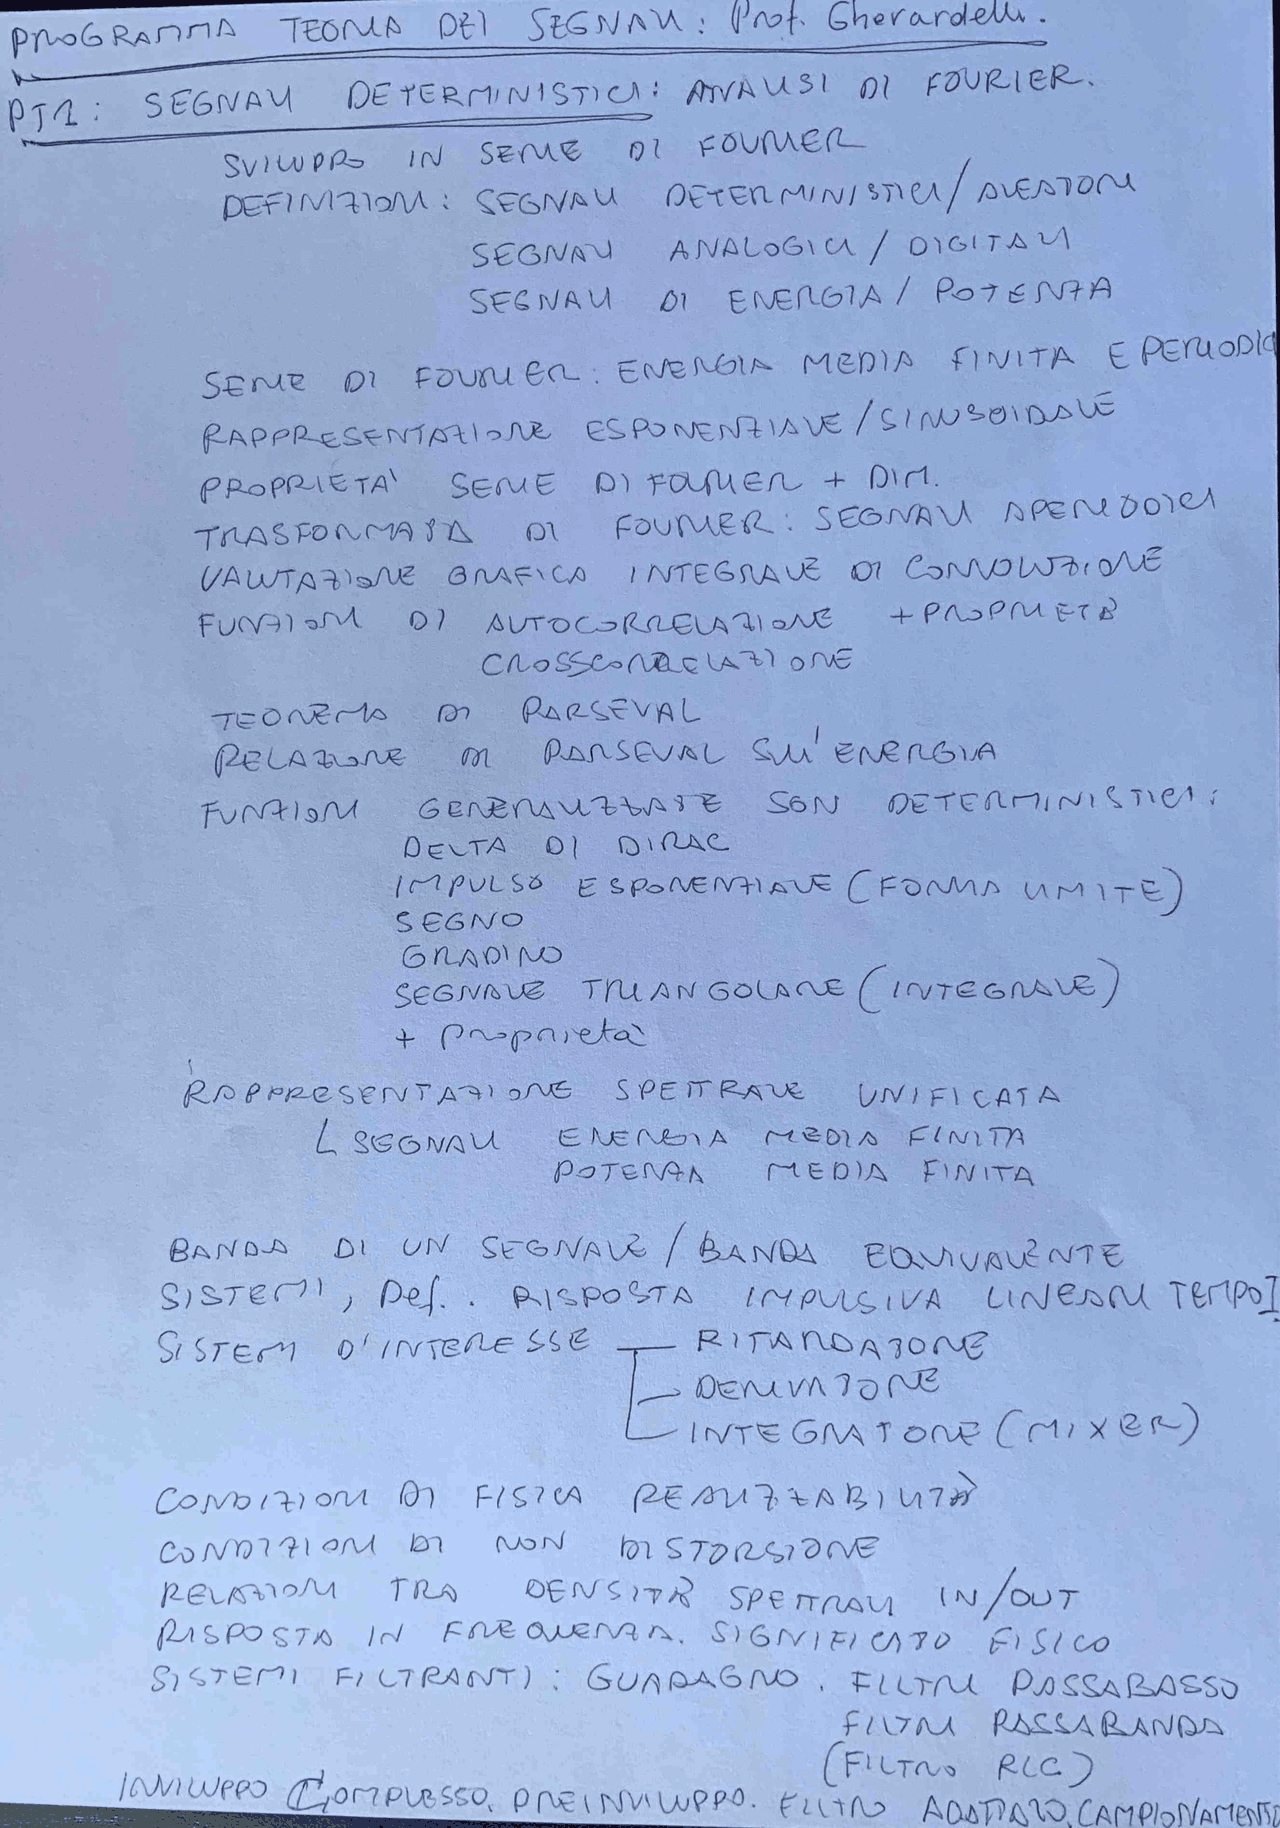 PROGRAMMA TEORIA DEI SEGNALI: Prof. Gherardelli.
PT1: SEGNALI DETERMINISTICI: ANALISI DI FOURIER.
SVILUPPO IN SERIE DI FOURIER
DEFINIZIONI: SEGNALI DETERMINISTICI/ALEATORI
SEGNALI ANALOGICI/DIGITALI
SEGNALI DI ENERGIA/POTENZA
SERIE DI FOURIER: ENERGIA MEDIA FINITA E PERIODIC
RAPPRESENTAZIONE ESPONENZIALE/SINUSOIDALE
PROPRIETA' SERIE DI FOURIER + DIM.
TRASFORMATA DI FOURIER: SEGNALI APERIODICI
VALUTAZIONE GRAFICA INTEGRALE DI CONVOLUZIONE
FUNZIONI DI AUTOCORRELAZIONE + PROPRIETÀ
CROSSCORRELAZIONE
TEOREMA DI PARSEVAL
RELAZIONE DI PARSEVAL SULL'ENERGIA
FUNZIONI GENERALIZZATE SGN DETERMINISTICI:
DELTA DI DIRAC
IMPULSO ESPONENZIALE (FORMA LIMITE)
SEGNO
GRADINO
SEGNALE TRIANGOLARE (INTEGRALE)
+ Proprietà
RAPPRESENTAZIONE SPETTRALE UNIFICATA
SEGNALI ENERGIA MEDIA FINITA
POTENZA MEDIA FINITA
BANDA DI UN SEGNALE/BANDA EQUIVALENTE
SISTEMI, Def.. RISPOSTA IMPULSIVA LINEARI TEMPO I
SISTEMI D'INTERESSE RITARDATORE
DERIVATORE
INTEGRATORE (MIXER)
CONDIZIONI DI FISICA REALIZZABILITÀ
CONDIZIONI DI NON DISTORSIONE
RELAZIONI TRA DENSITÀ SPETTRALI IN/OUT
RISPOSTA IN FREQUENZA. SIGNIFICATO FISICO
SISTEMI FILTRANTI: GUADAGNO. FILTRI PASSABASSO
FILTRI PASSABANDA
(FILTRO RLC)
INVILUPPO COMPLESSO. PREINVILUPPO. FILTRO ADATTATO. CAMPIONAMENTO